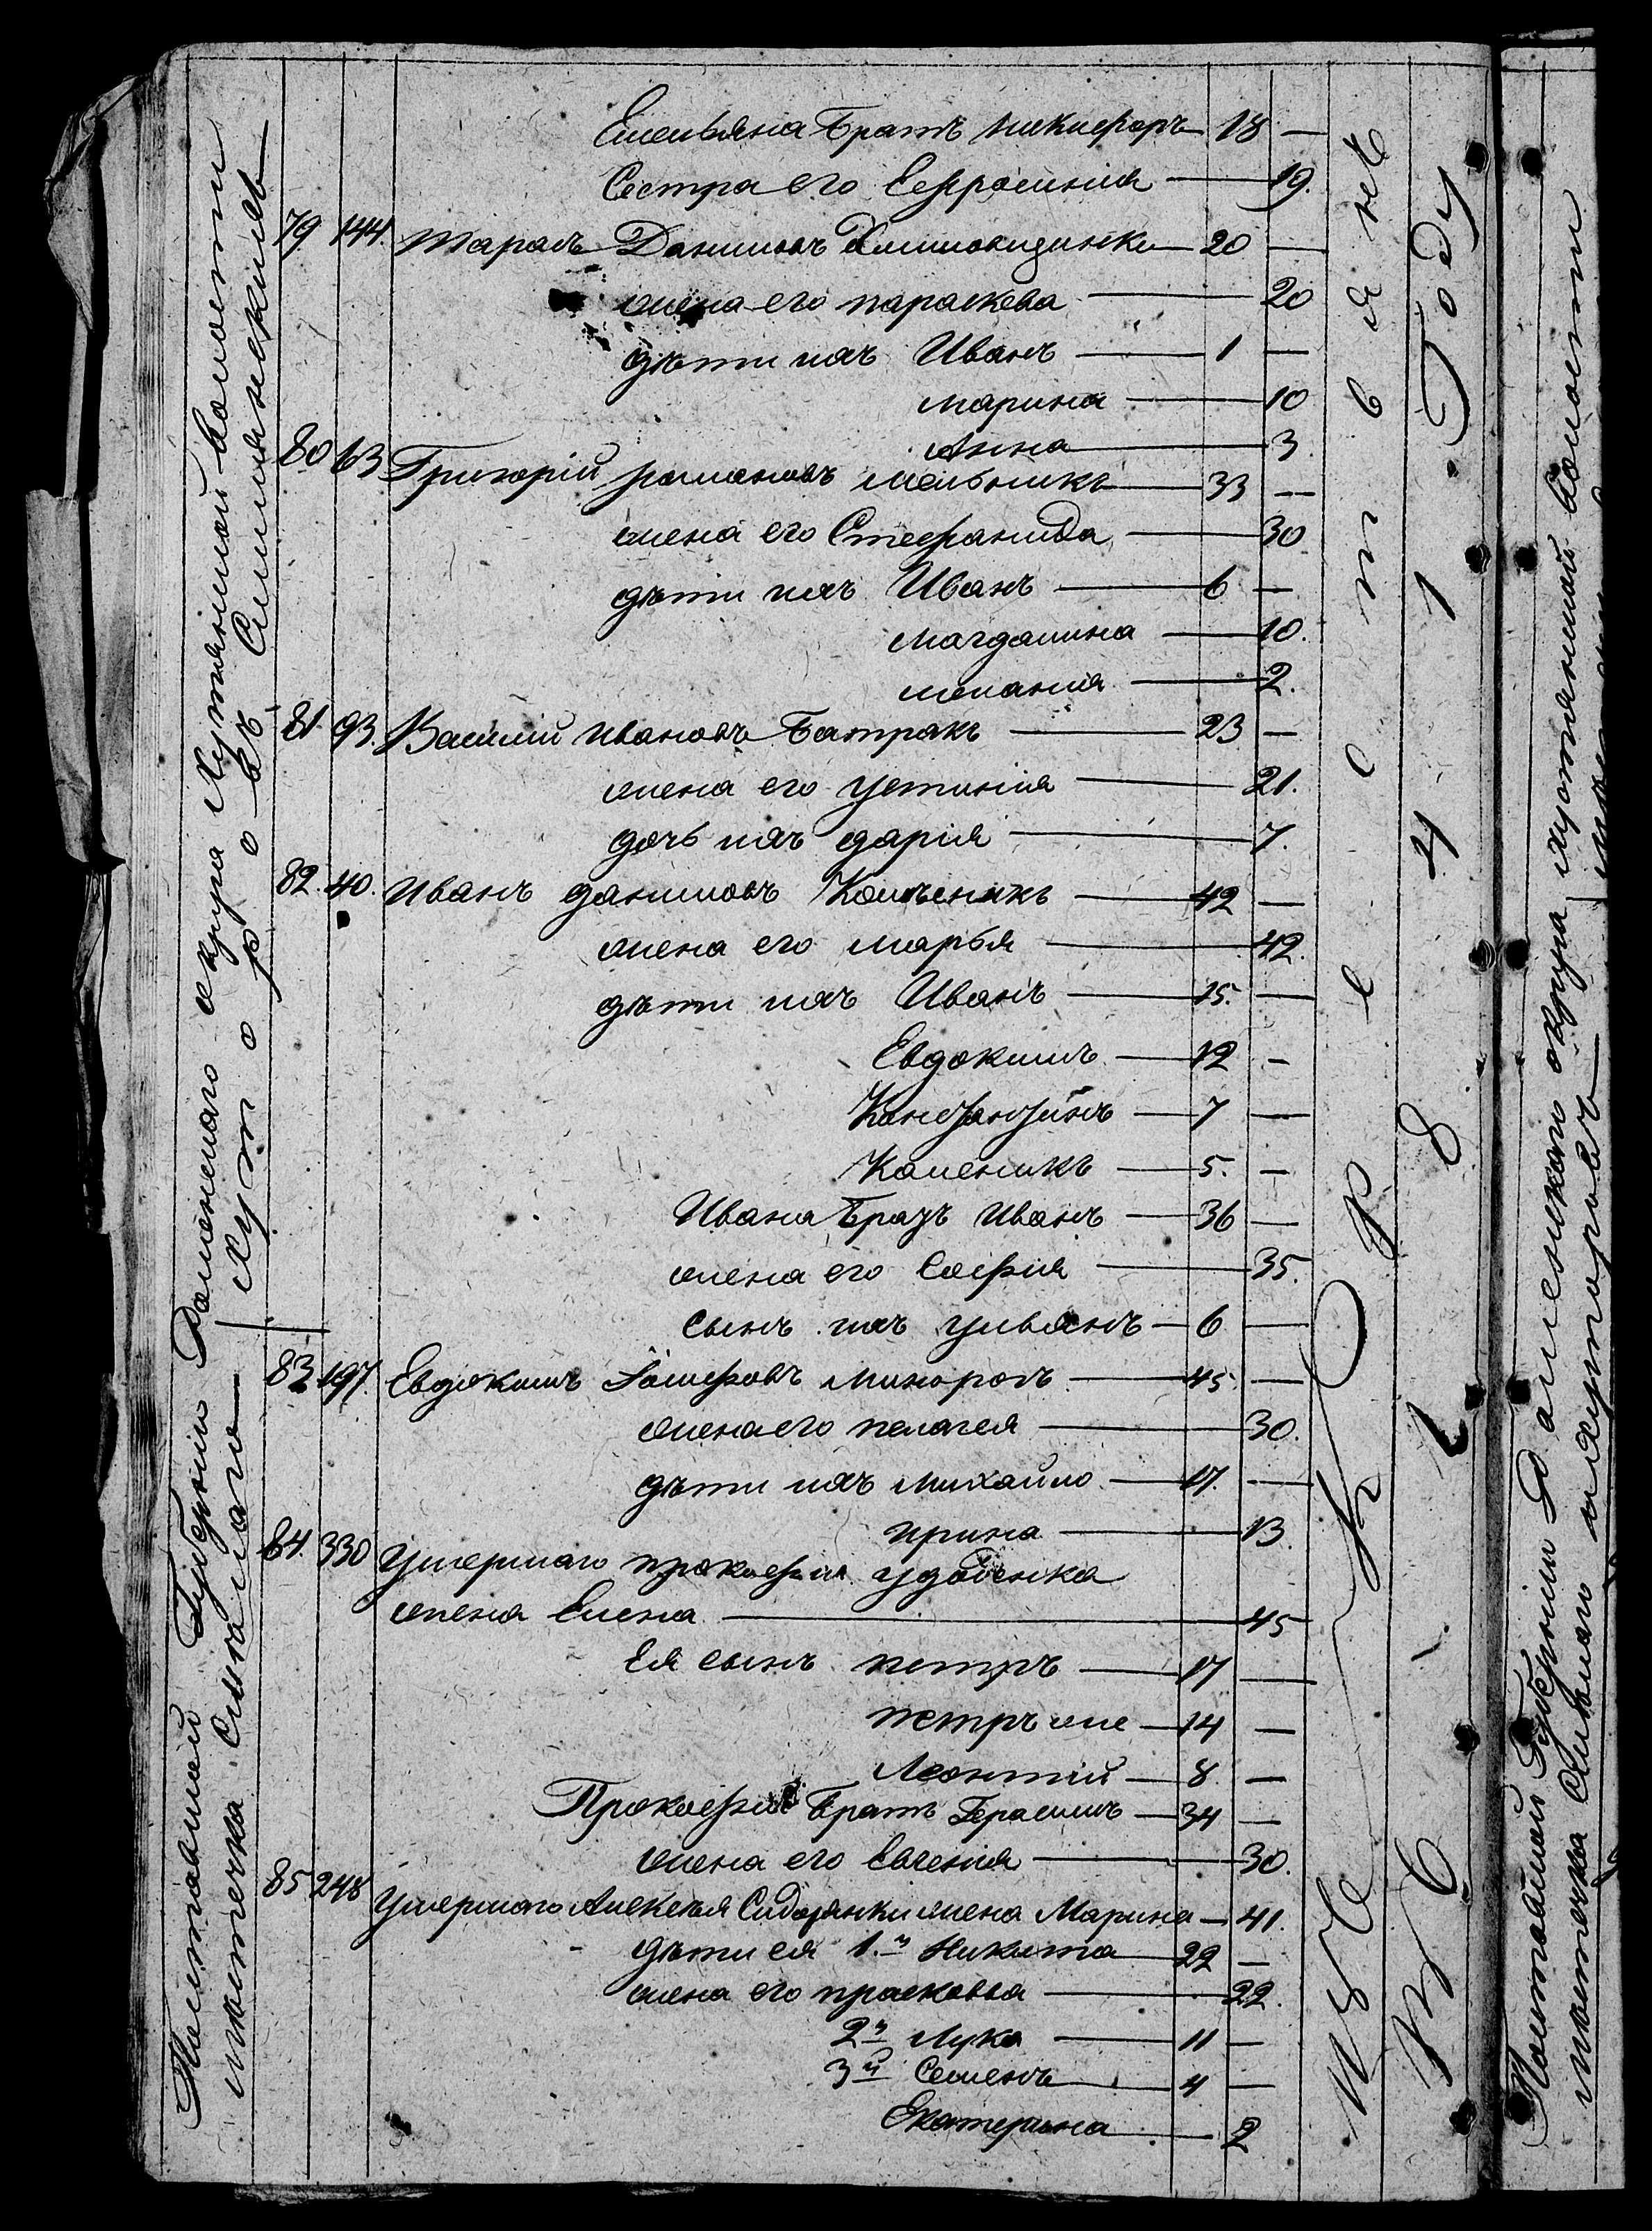 Емельяна Братъ никифоръ 18 —
Сестра его Ефросинія 19.
79 144. тарасъ Даниловъ 20 —
жена его параскева 20
дѣти ихъ Иванъ 1 —
марина 10
Анна 3
80 63 Григорій романовъ мельникъ 33 —
жена его Стефанида 30
дѣти ихъ Иванъ 6 —
магдалина 10.
меланія 2.
81. 93. Василій ивановъ Батракъ 23 —
жена его устинія 21.
дочь ихъ дарія 7.
82. 40. Иванъ даниловъ 42 —
жена его марья 42.
дѣти ихъ Иванъ 15. —
Евдокимъ 12 —
Константинъ 7 —
Каленикъ 5. —
Ивана Братъ Иванъ 36 —
жена его Софія 35.
сынъ ихъ ульянъ 6 —
83 197. Евдокимъ 45. —
жена его пелагея 30.
дѣти ихъ михайло 17. —
ирина 13.
84. 330 умершаго прокофія
жена Елена 45
Ея сынъ петръ 17 —
петръ же 14 —
Леонтій 8. —
Прокофія Братъ Герасимъ 34 —
жена его Евгенія 30.
85 248 умершаго Алексѣя жена Марина — 41.
дѣти ея 1.й Никита 22 —
жена его прасковья 22.
2й Лука 11 —
3й Семенъ 4 —
Екатерина 2
Полтавской Губерніи Роменского округа волости
местечка хуторовъ
Въ 1841 Году
Полтавской Губерніи Роменского округа волости
местечка хуторовъ